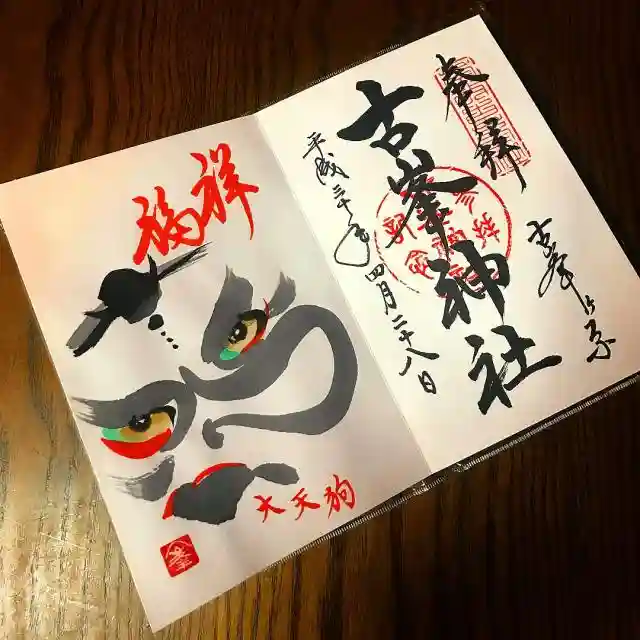 奉拝
古峯ヶ原
古峯神社
平成三十年四月二十八日
祥福
大天狗